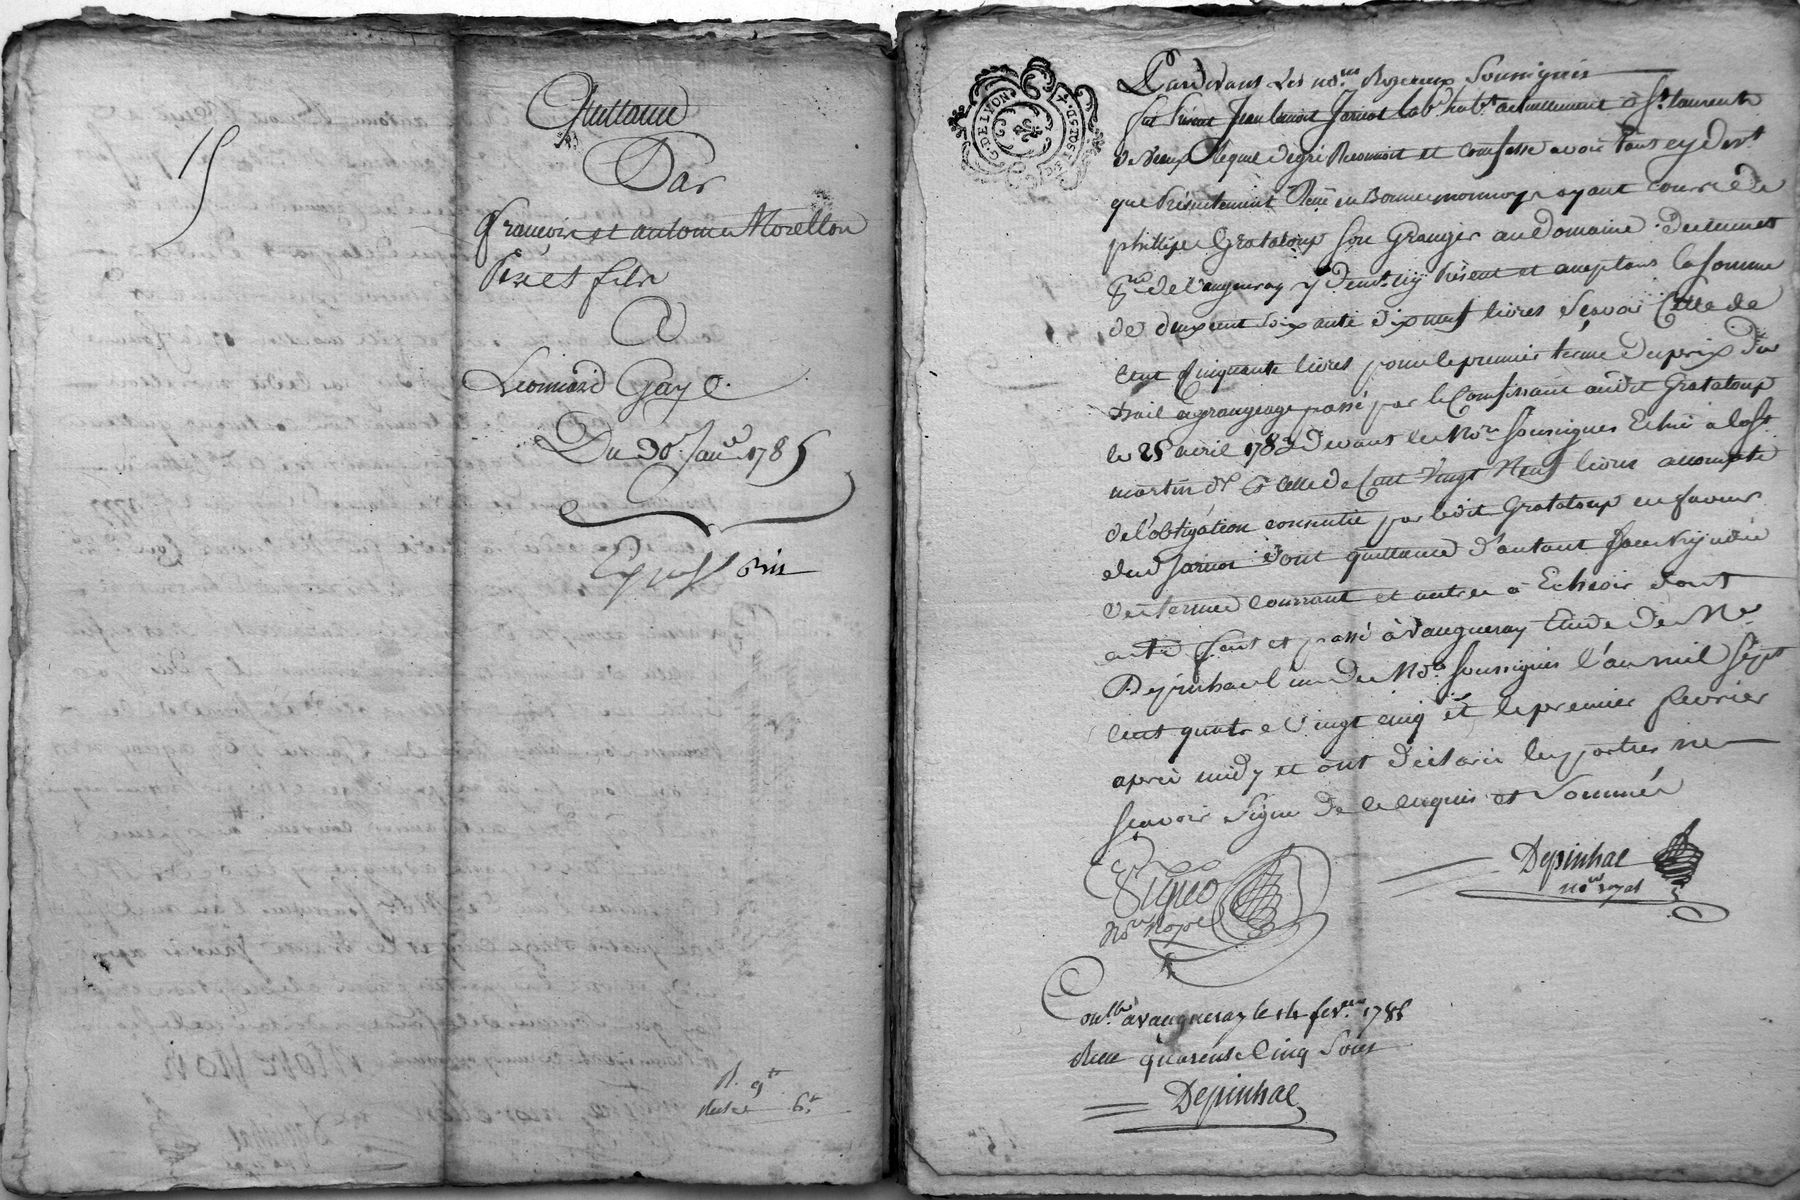 15
Quittance
Par
François et antoine Morellon
Pere et fils
A
Leonnard Gayé.
Du 30e. Janv. 1785
Expe
R. 9
6
G. DE LYON
Pardevant Les nores. Royaux Soussignés
fut Présent Jean benoit Jarnot lab. habt. actuellement a St. laurent
de Vaux Lequel de gré Reconnoit et Confesse avoir tant cy devt.
que Présentement Reçu en Bonne monnoye ayant cours de
phillipe Grataloup son Granger au Domaine des
de Vaugneray y demt. icy Présent et acceptant la somme
de deux cent soix ante dix neuf livres sçavoir Celle de
Cent Cinquante livres pour le premier terme du prix du
Bail a grangeage passé par le Confessant audit Grataloup
le 25 avril 1783 devant les Nores. soussignes Echu a la St.
martin dr. & Celle de Cent Vingt Neuf livres accompte
de l'obligation consentie par ledit Grataloup en faveur
dud. Jarnot dont quittance d'autant sans Préjudice
du terme Courrant et autres a Echeoir dont
acte fait et passé à Vaugneray Etude de Me.
Depinhac l'un des Nores. soussignés l'an mil sept
cent quatre Vingt cinq et le premier fevrier
après midy et ont declaré les parties ne
sçavoir signer de ce enquis et sommés
Nore. Royal
Depinhac
nore. royal
Conllé. à vaugneray le 14 fevr. 1785
Reçu quarente Cinq Sous
Depinhac